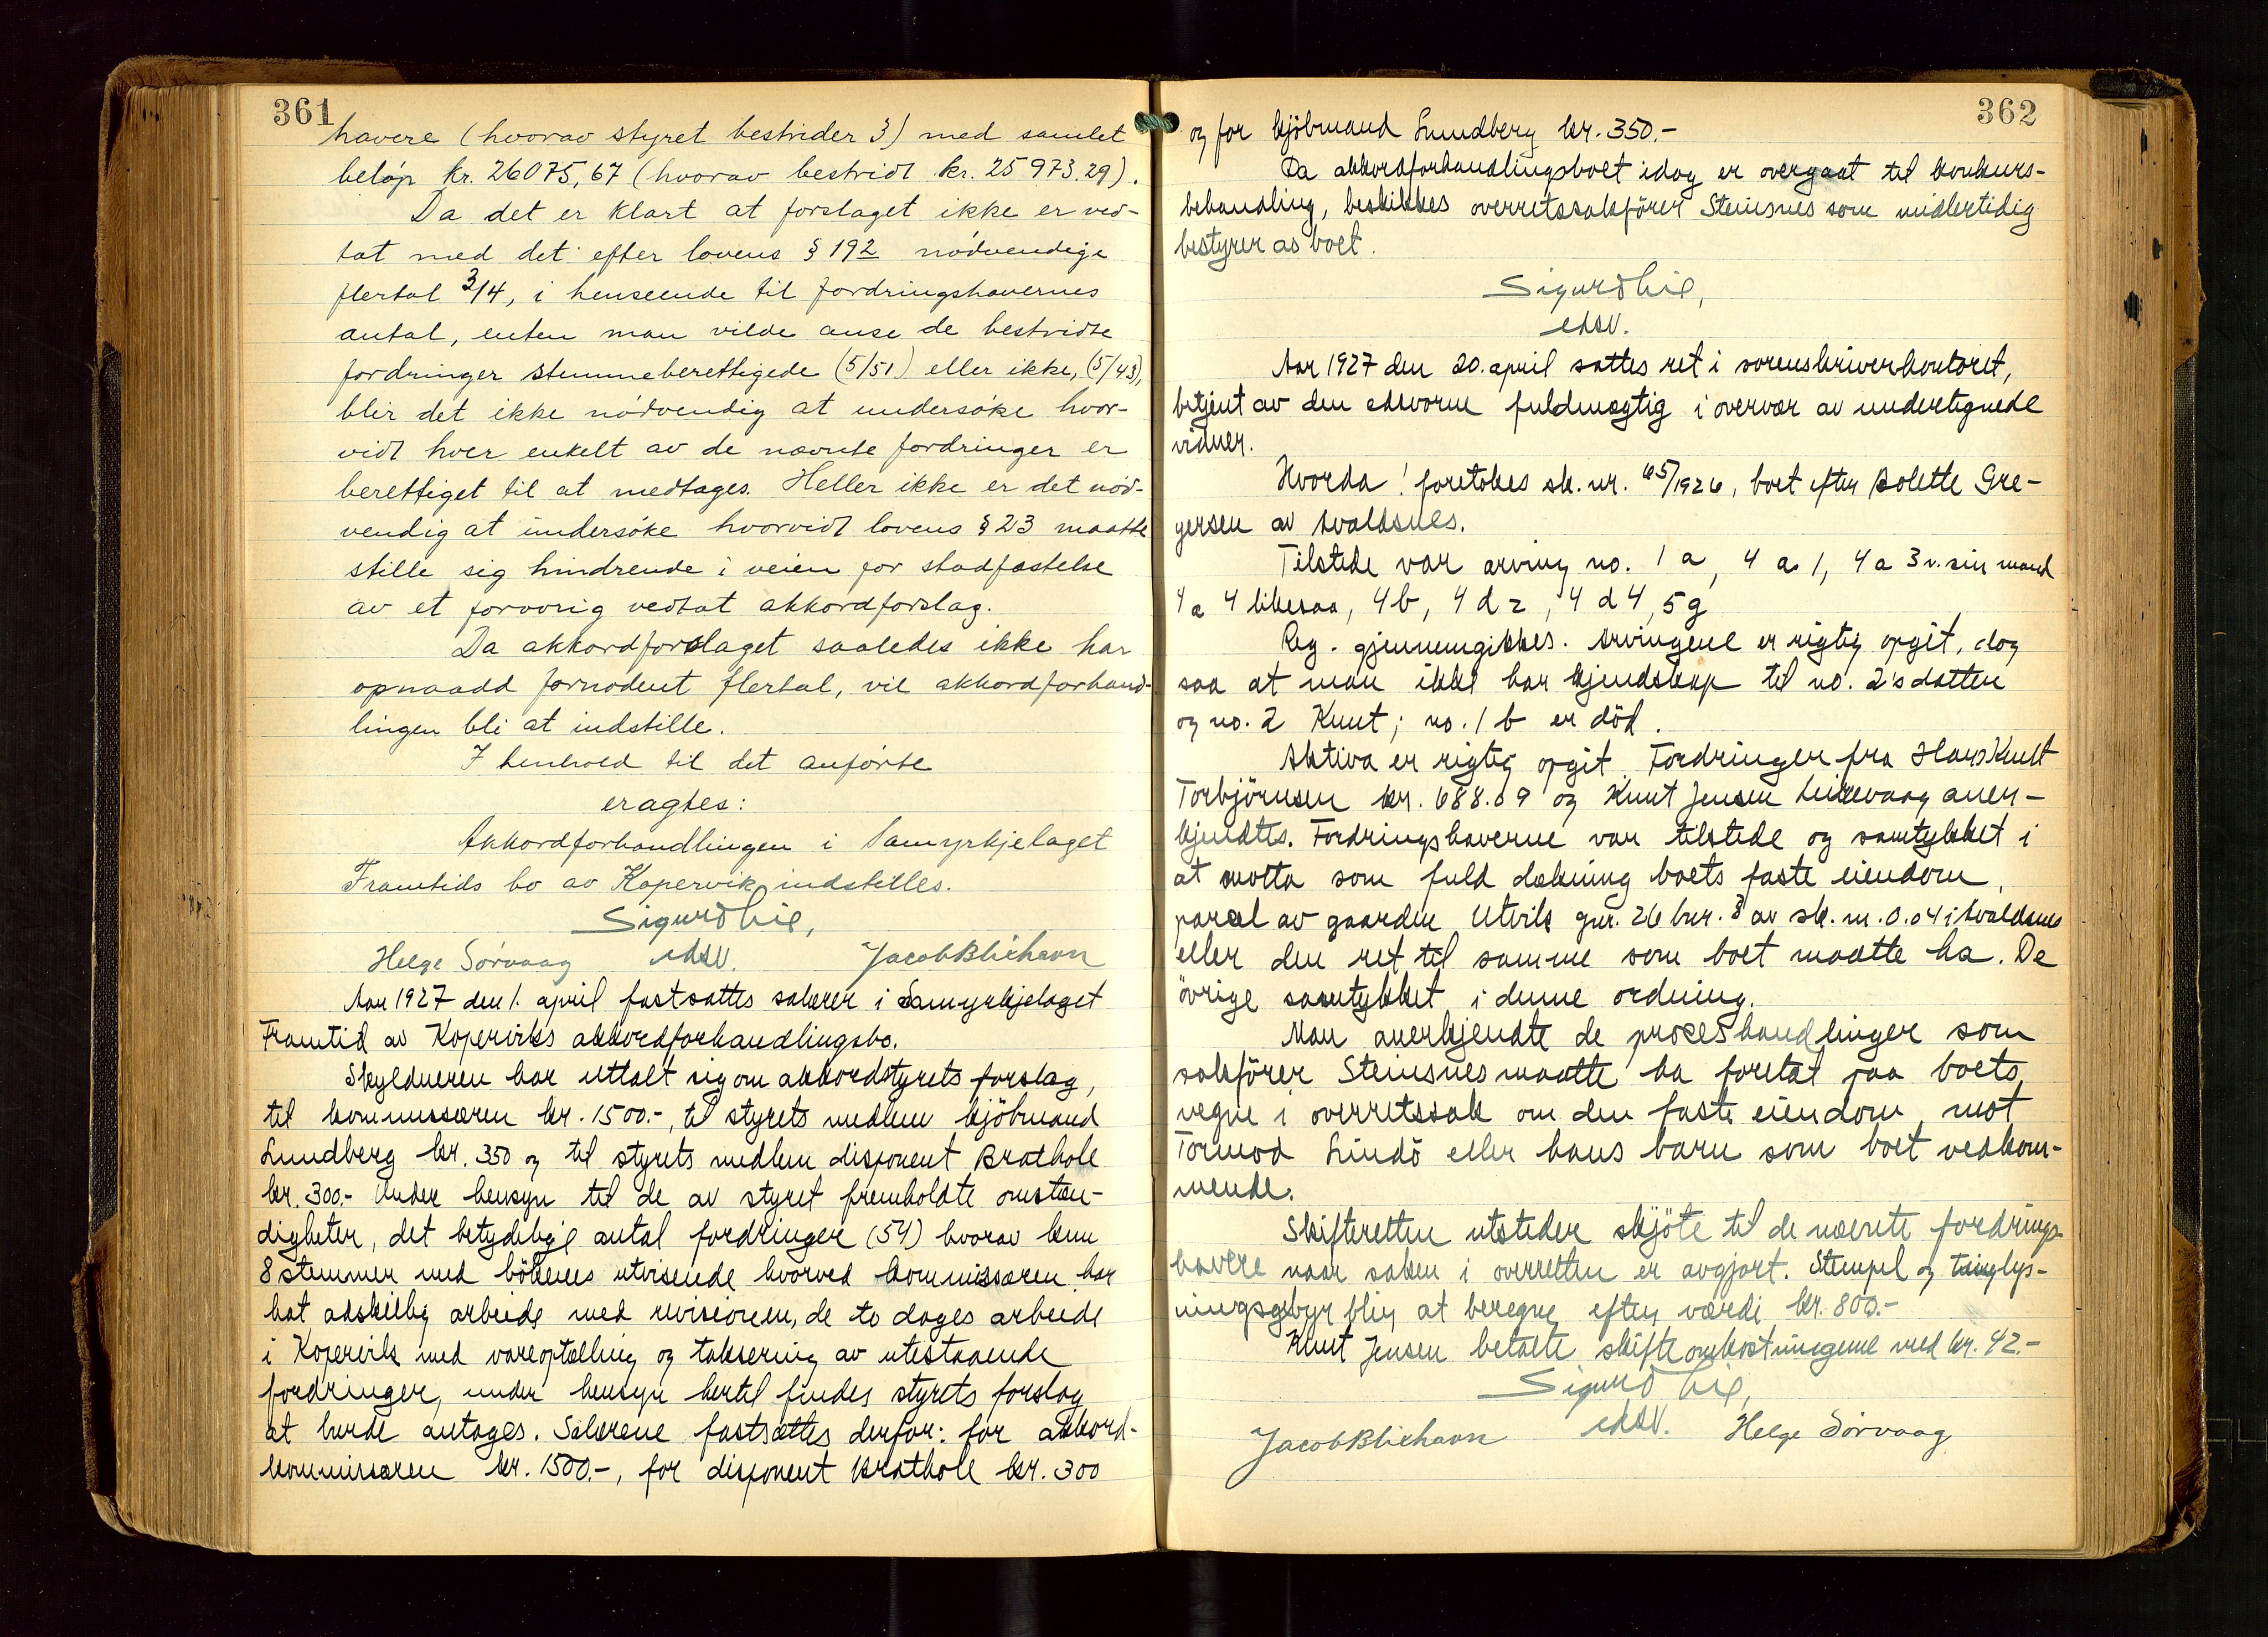 361
havere (hvorav styret bestrider 3) med samlet
beløp kr. 26075,67 (hvorav bestridt kr. 25973.29).
Da det er klart at forslaget ikke er ved-
tat med det efter lovens § 192 nödvendige
flertal 3/4, i henseende til fordringshavernes
antal, enten man vilde anse de bestridte
fordringer stemmeberettigede (5/51) eller ikke, (5/43),
blir det ikke nödvendig at undersöke hvor-
vidt hver enkelt av de nævnte fordringer er
berettiget til at medtages. Heller ikke er det nöd-
vendig at undersöke hvorvidt lovens § 23 maatte
stille sig hindrende i veien for stadfæstelse
av et forövrig vedtat akkordforslag.
Da akkordforslaget saaledes ikke har
opnaadd fornödent flertal, vil akkordforhand-
lingen bli at indstille.
I henhold til det anförte
eragtes:
Akkordforhandlingen i Samyrkjelaget
Framtids bo av Kopervik indstilles.
Sigurd Lie,
edsv.
Helge Sörvaag Jacob Blikhavn
Aar 1927 den 1. april fastsattes salærer i Samyrkjelaget
Framtid av Koperviks akkordforhandlingsbo.
Skyldneren har uttalt sig om akkordstyrets forslag,
til kommissæren kr. 1500.-, til styrets medlem kjöbmand
Lundberg kr. 350 og til styrets medlem disponent Brathole
kr. 300.- Under hensyn til de av styret fremholdte omstæn-
digheter, det betydelige antal fordringer (54) hvorav kun
8 stemmer med bökenes utvisende hvorved kommissæren har
hat adskillig arbeide med revisionen, de to dages arbeide
i Kopervik med vareoptælling og taksering av utestaaende
fordringer, under hensyn hertil findes styrets forslag
at burde antages. Salærene fastsættes derfor: for akkord-
kommissæren kr. 1500.-, for disponent Brathole kr. 300
362
og for kjöbmand Lundberg kr. 350.-
Da akkordforhandlingsboet idag er overgaat til konkurs-
behandling, beskikkes overretssakförer Steinsnes som midlertidig
bestyrer av boet.
Sigurd Lie,
edsv.
Aar 1927 den 20. april sattes ret i sorenskriverkontoret,
betjent av den edsvorne fuldmægtig i overvær av undertegnede
vidner.
Hvorda! foretokes sk. nr. 65/1926, boet efter Bolette Gre-
gersen av Avaldsnes.
Tilstede var arving no. 1 a, 4 a 1, 4 a 3 v. sin mand
4 a 4 likesaa, 4 b, 4 d 2, 4 d 4, 5 g
Reg. gjennemgikkes. Arvingene er rigtig opgit, dog
saa at man ikke har kjendskap til no. 2's datter
og no. 2 Knut; no. 1 b er död.
Aktiva er rigtig opgit. Fordringer fra Hans Knut
Torbjörnsen kr. 688.09 og Knut Jensen aner-
kjendtes. Fordringshaverne var tilstede og samtykket i
at motta som fuld dækning boets faste eiendom,
parcel av gaarden Utvik gnr. 26 bnr. 8 av sk. m. 0.04 i Avaldsnes
eller den ret til samme som boet maatte ha. De
övrige samtykket i denne ordning.
Man anerkjendte de proceshandlinger som
sakförer Steinsnes maatte ha foretat paa boets
vegne i overretssak om den faste eiendom mot
Tormod Lindö eller hans barn som boet vedkom-
mende.
Skifteretten utsteder skjöte til de nævnte fordrings-
havere naar saken i overretten er avgjort. Stempel og tinglys-
ningsgebyr blir at beregne efter værdi kr. 800.-
Knut Jensen betalte skifteomkostningene med kr. 42.-
Sigurd Lie,
edsv.
Jacob Blikhavn Helge Sörvaag